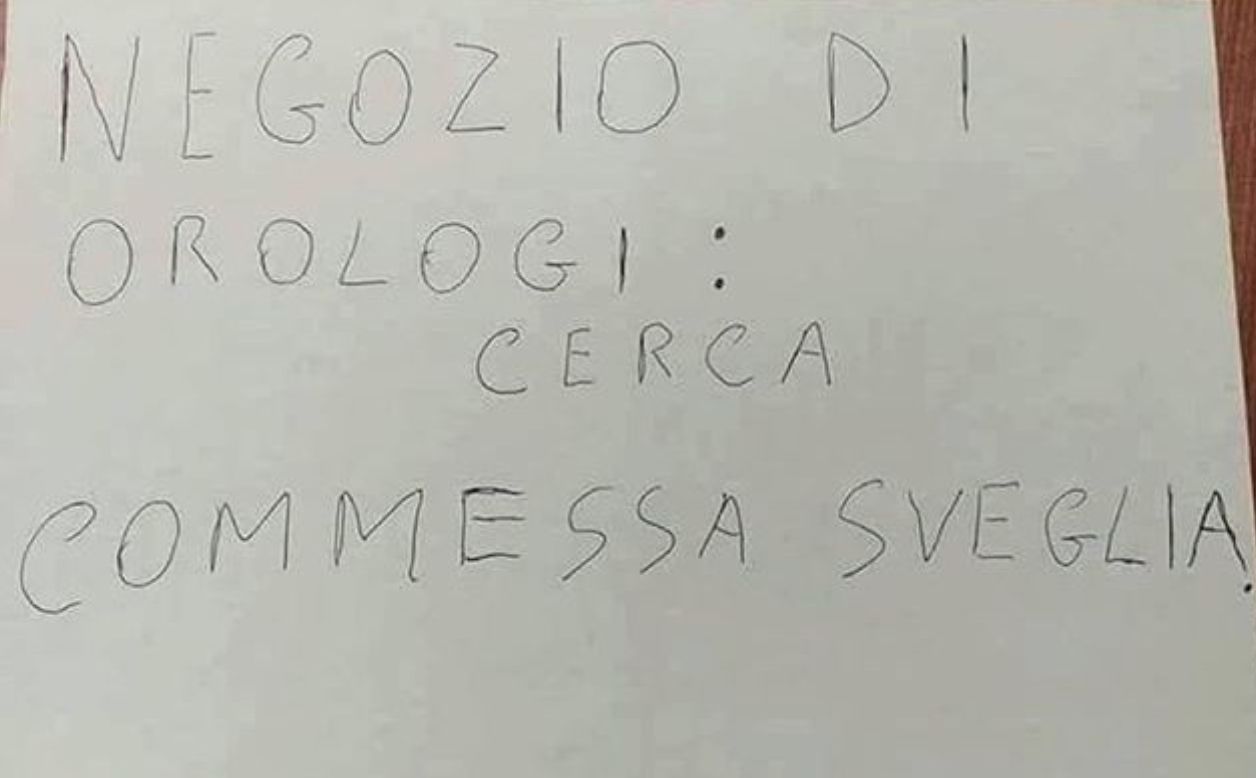 NEGOZIO DI
OROLOGI:
CERCA
COMMESSA SVEGLIA.